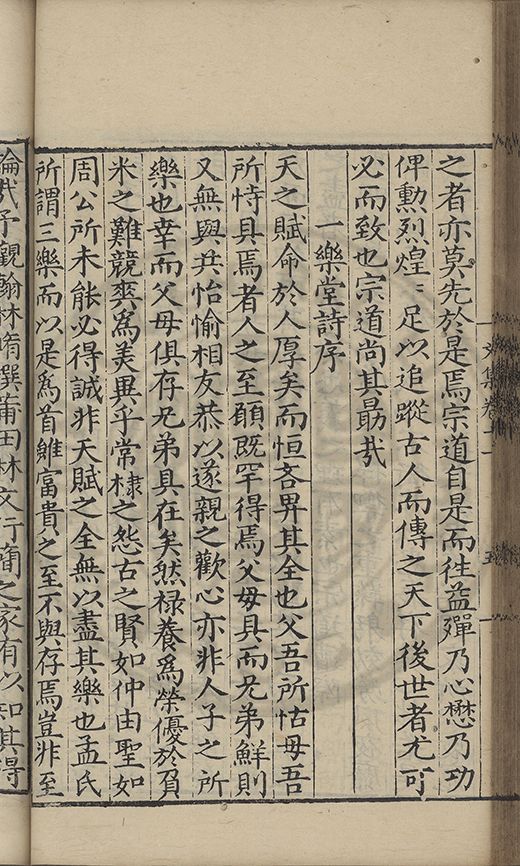 之者亦莫先於是焉宗道自是而徃益殫乃心懋乃功
俾勲烈煌〻足以追蹤古人而傳之天下後世者尤可
必而致也宗道尚其勗㢤
一樂堂詩序
天之賦命於人厚矣而恒吝畀其全也父吾所怙母吾
所恃具焉者人之至願既罕得焉父母具而兄弟鮮則
又無與共怡愉相友恭以遂親之歡心亦非人子之所
樂也幸而父母俱存兄弟具在矣然禄養為榮優於負
米之難競爽為美異乎常棣之怨古之賢如仲由聖如
周公所未能必得誠非天賦之全無以盡其樂也孟氏
所謂三樂而以是為首雖富貴之至不與存焉豈非至
翰林脩撰莆田林文行簡之家有以知其得